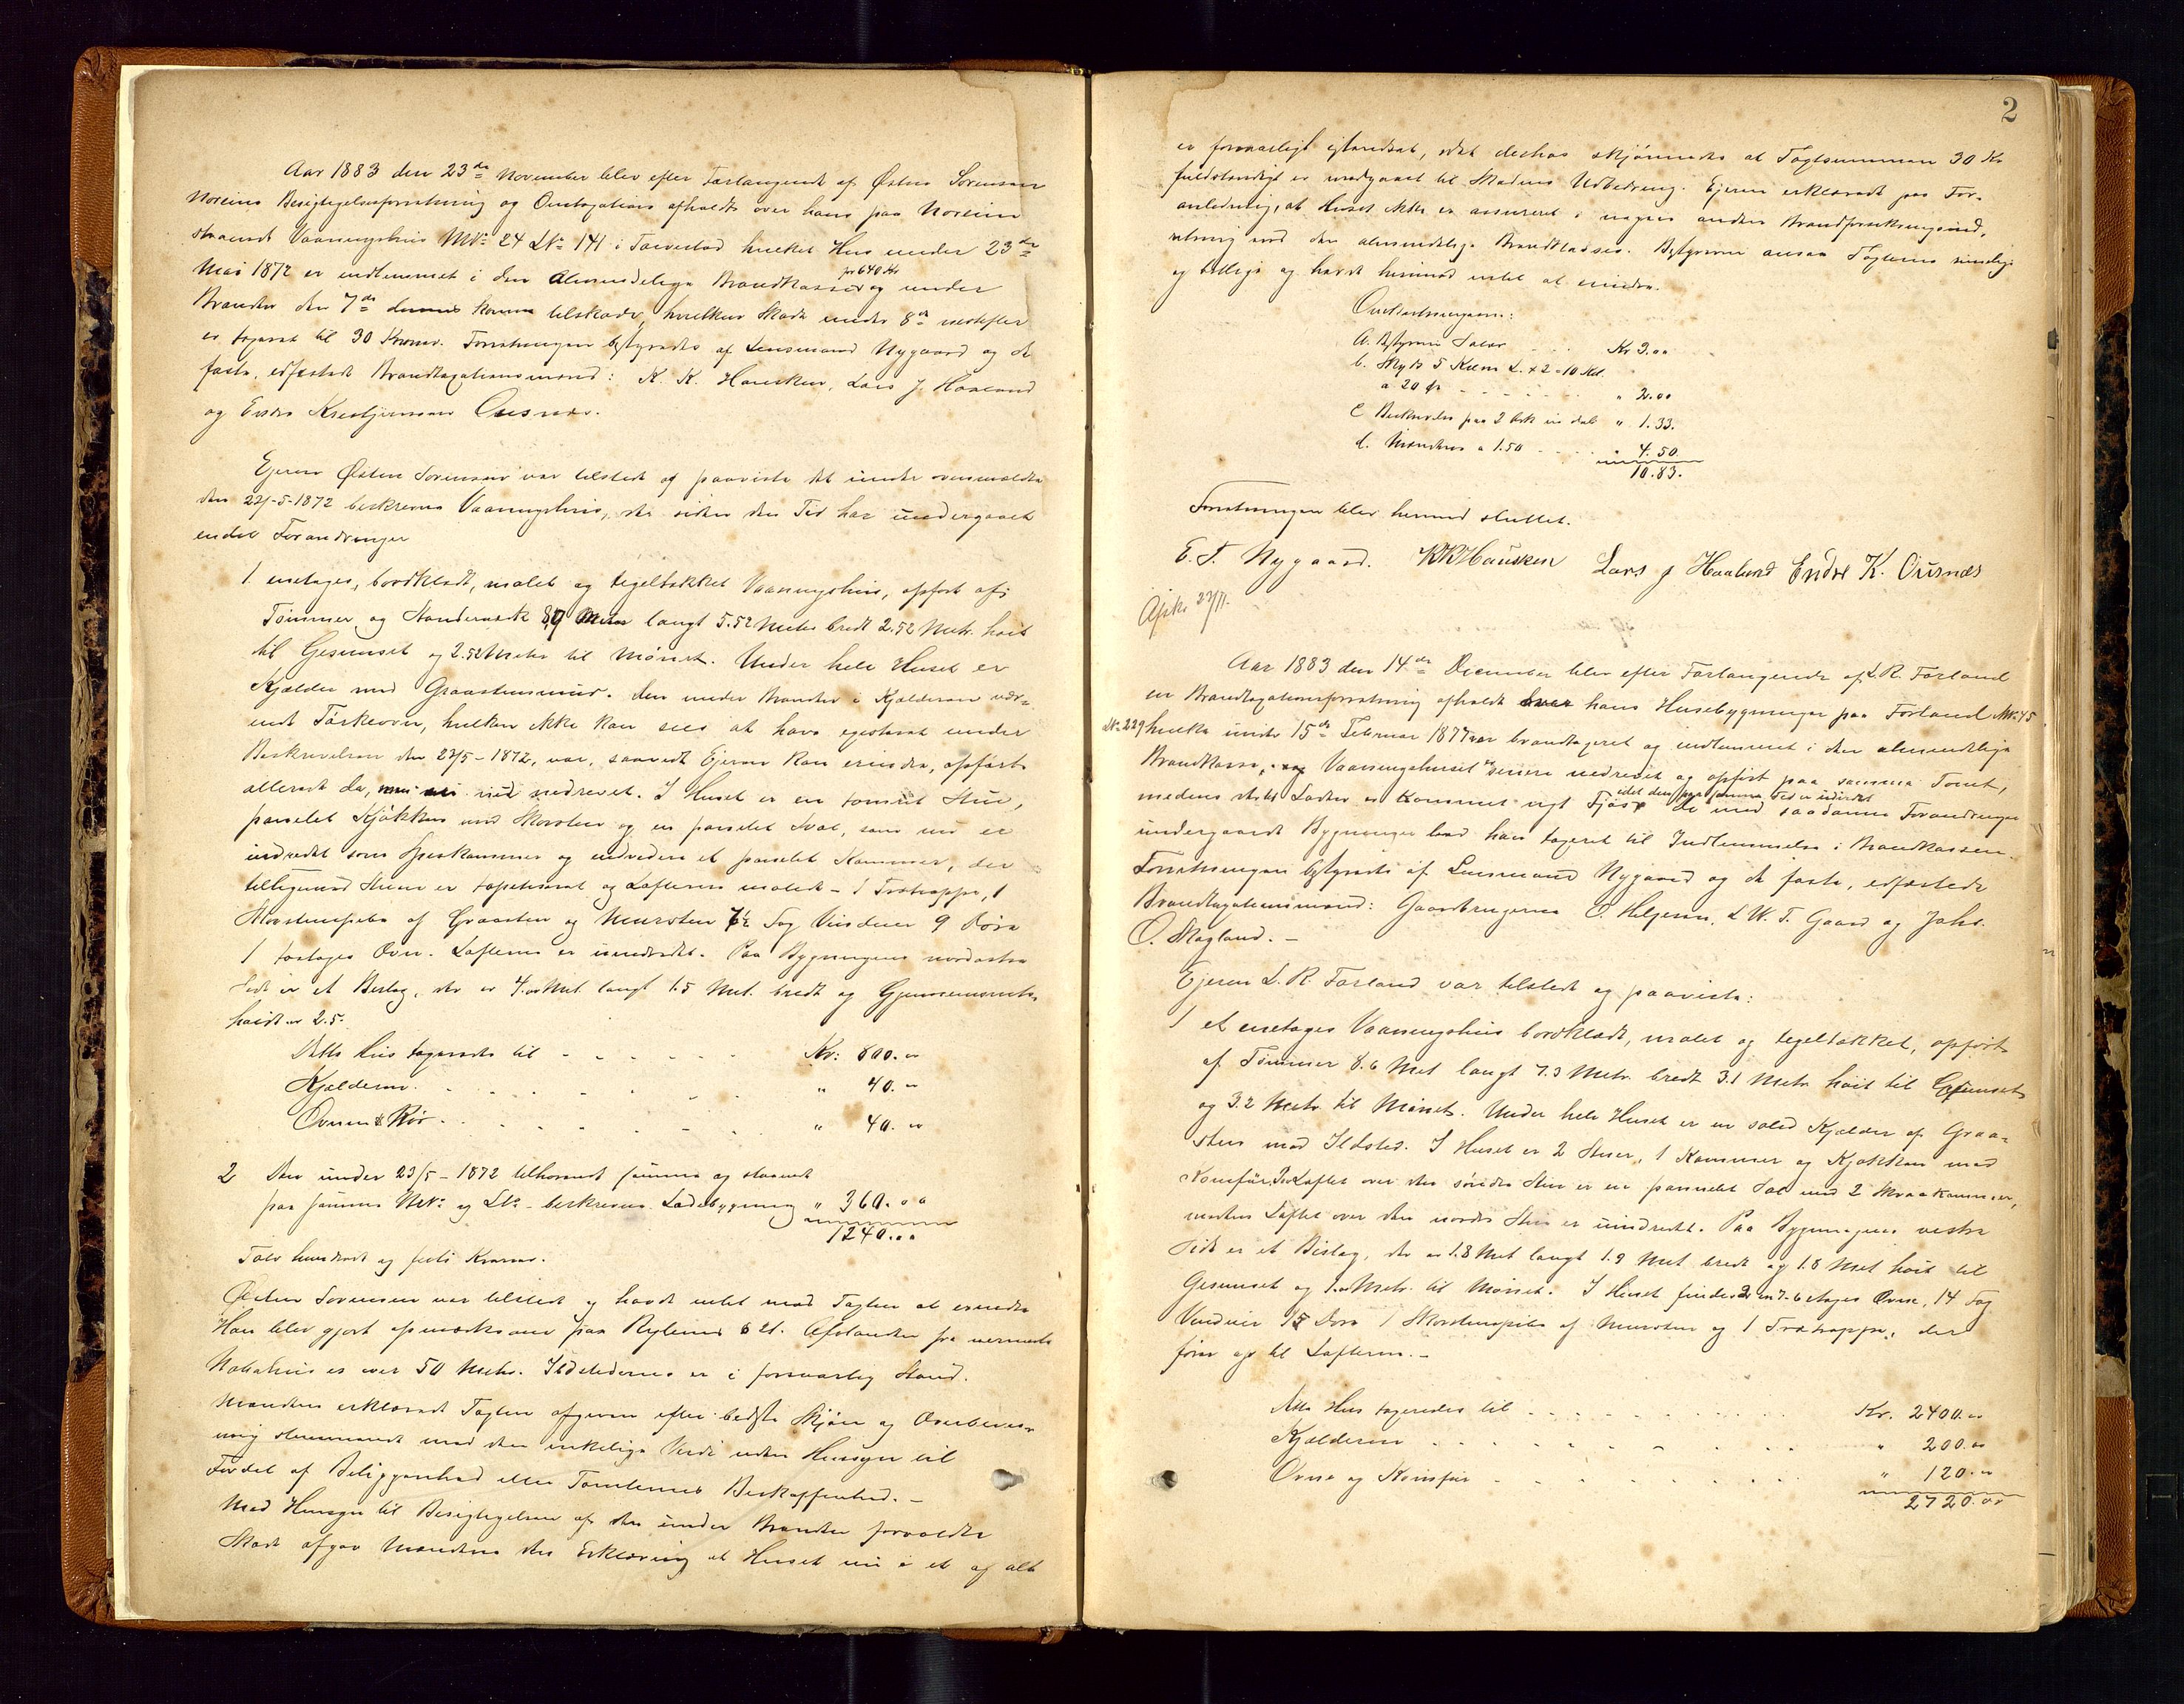 Aar 1883 den 23de November blev efter Forlangende af Østen Sørensen
Noreim Besigtigelsesforretning og Omtaxation afholdt over hans paa Noreim
staaende Vaaningshus MNo 24 LNo 141 i Torvestad hvilket Hus under 23de
Mai 1872 er indlemmet i den Almindelige Brandkasse for 640 Kr og under
Branden den 7de dennes kommen tilskade, hvilken Skade under 8de næstefter
er taxeret til 30 Kroner. Forretningen bestyredes af Lensmand Nygaard og de
faste, edfæstede Brandtaxationsmænd: K. K. Hausken, Lars J. Haaland
og Endre Kristjensen Ousnes.
Ejeren Østen Sørensen var tilstede og paaviste det under ovenmeldte
den 23/5-1872 beskrevne Vaaningshus, der siden den Tid har undergaaet
endel Forandringer
1. enetages, bordklædt, malet og tegeltækket Vaaningshus, opført af
Tømmer og Standerværk 8,9 Meter langt 5.52 Meter bredt 2.52 Metr. høit
til Gesimset og 2.52 Meter til Mønet. Under hele Huset er
Kjælder med Graastensmur. Den under Branden i Kjælderen vær-
ende Tørkeovn, hvilken ikke kan sees at have existeret under
Beskrivelsen den 23/5-1872, var, saavidt Ejeren kan erindre, opført
allerede da, men nu nedrevet. I Huset er en tømret Stue,
panelet Kjøkken med Skorsten og en panelet Sval, som nu er
indredet som Spiskammer og endvidere et panelet Kammer, der
tilligemed Stuen er tapetseret og Lofterne malede - 1 Trætrappe, 1
Skorstenspibe af Graasten og Mursten 7½ Fag Vinduer 9 Døre
1 toetages Ovn. Lofterne er uindredet. Paa Bygningens nordøstre
Side er et Bislag, der er 4.00 Met. langt 1.5 Met. bredt og Gjennemsnits
høide er 2.5.
Dette Hus taxeredes til - - - - - Kr: 800.00
Kjælderen - - - - - " 40.00
Ovnen & Rør - - - - - " 40.00
2 Den under 23/5-1872 tilhørende samme og staaende
paa samme MNo og LNo beskrevne Ladebygning " 360.00
1240.00
Tolv hundrede og firti Kroner.
Østen Sørensen var tilstede og havde intet mod Taxten at erindre
Han blev gjort opmærksom paa Reglernes § 21. Afstanden fra nærmeste
Nabohus er over 50 Metr. Ildstederne er i forsvarlig Stand.
Mændene erklærede Taxten afgiven efter bedste Skjøn og Overbevis-
ning stemmende med den virkelige Værdi uden Hensyn til
Fordel af Beliggenhed eller Tomternes Beskaffenhed. -
Med Hensyn til Besigtigelsen af den under Branden forvoldte
Skade afgav Mændene den Erklæring at Huset nu i et og alt
2
er forsvarligt istandsat, idet derhos skjønnedes at Taxtsummen 30 Kr
fuldstændigt er medgaaet til Skadens Udbedring. Ejeren erklærede paa For-
anledning, at Huset ikke er assureret i nogen anden Brandforsikringsind-
retning end den almindelige Brandkasse. Bestyreren ansaa Taxterne rimelige
og billige og havde herimod intet at erindre.
Omkostningerne:
a. Bestyrerens Salær - - - Kr 3.00
b. Skyds 5 Kilm L. x 2 = 10 Kil.
a 20 Øre - - - - - - " 2.00
c Beskrivelse paa 2 Ark " 1.33.
d. Mændene a 1.50 - - - - 4.50
10.83.
Forretningen blev hermed sluttet.
E. T. Nygaard. KKHausken Lars J Haaland Endre K. Ousnæs
Afsk. 27/11.
Aar 1883 den 14de December blev efter Forlangende af L. R. Førland
en Brandtaxationsforretning afholdt over hans Husebygninger paa Førland MNo 45
LNo 229 hvilke under 15de Februar 1877 er brandtaxeret og indlemmet i den almindelige
Brandkasse, Vaaningshuset er senere nedrevet og opført paa samme Tomt,
idet den paa samme Tid er udvidet
medens det til Laden er kommet nyt Fjøs. De med saadanne Forandringer
undergaaede Bygninger bad han taxeret til Indlemmelse i Brandkassen.
Forretningen bestyredes af Lensmand Nygaard og de faste, edfæstede
Brandtaxationsmænd: Gaardbrugerne O. Heljesen, L. W. T. Gaard og Johs.
O. Stagland. -
Ejeren L. R. Førland var tilstede og paaviste:
1 et enetages Vaaningshus bordklædt, malet og tegeltækket, opført
af Tømmer 8.6 Met langt 7.3 Metr. bredt 3.1 Metr høit til Gesimset
og 3.2 Metr til Mønet. Under hele Huset er en solid Kjælder af Graa-
sten med Ildsted. I Huset er 2 Stuer, 1 Kammer og Kjøkken med
Komfur. Paa Loftet over den søndre Stue er en panelet Sal med 2 Skraakammere,
medens Loftet over den nordre Stue er uindredet. Paa Bygningens vestre
Side er et Bislag, der er 1.8 Met langt 1.9 Met bredt og 1.8 Met høit til
Gesimset og 1.00 Metr. til Mønet. I Huset findes 2 en 7. 6 etages Ovne, 14 Fag
Vinduer 15 Døre 1 Skorstenspibe af Mursten og 1 Trætrappe, der
fører op til Lofterne. -
Dette Hus taxeredes til - - - - - Kr. 2400.00
Kjælderen - - - - - " 200.00
Ovne og Komfur - - - - - " 120.00
2720.00